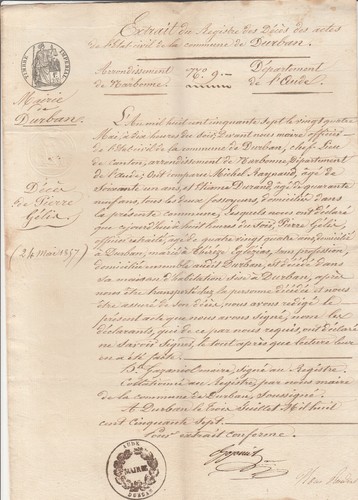 Extrait du Registre des Décès des actes
de l'Etat civil de la commune de Durban.
TIMBRE IMPERIAL
Arrondissement
de Narbonne
N.o 9.
Département
de l'Aude.
Mairie
de
Durban
Décès
de Pierre
Gelis
(24 Mai 1857)
L'An mil huit cent cinquante sept le vingt quatre
Mai, à heures du soir, Devant nous maire officier
de l'Etat civil de la commune de Durban, chef-lieu
de canton, arrondissement de Narbonne, Département
de l'aude, Ont comparu Michel Raynaud, âgé de
soixante un ans, et Etienne Durand, âgé de quarante
neuf ans, tous les deux fossoyeurs, domiciliés dans
la présente commune, lesquels nous ont déclaré
que ce jourd'hui à huit heures du soir, Pierre Gelis,
officier retraité, âgé de quatre vingt quatre ans, domicilié
à Durban, marié à Thérèze sans profession,
domiciliée au dit Durban, est décédé dans
sa maison d'habitation sise à Durban, après
nous être transporté chez la personne décédée et nous
être assuré de son décès, nous avons rédigé le
présent acte que nous avons signé, non les
déclarants, qui de ce par nous requis, ont déclaré
ne savoir signer, le tout après que lecture leur
en a été faite.
maire, signé au Registre.
Collationné au Registre, par nous maire
de la commune de Durban, soussigné.
A Durban le trois Juillet Mil huit
cent cinquante sept.
Pour extrait conforme.
AUDE
MAIRIE
DURBAN